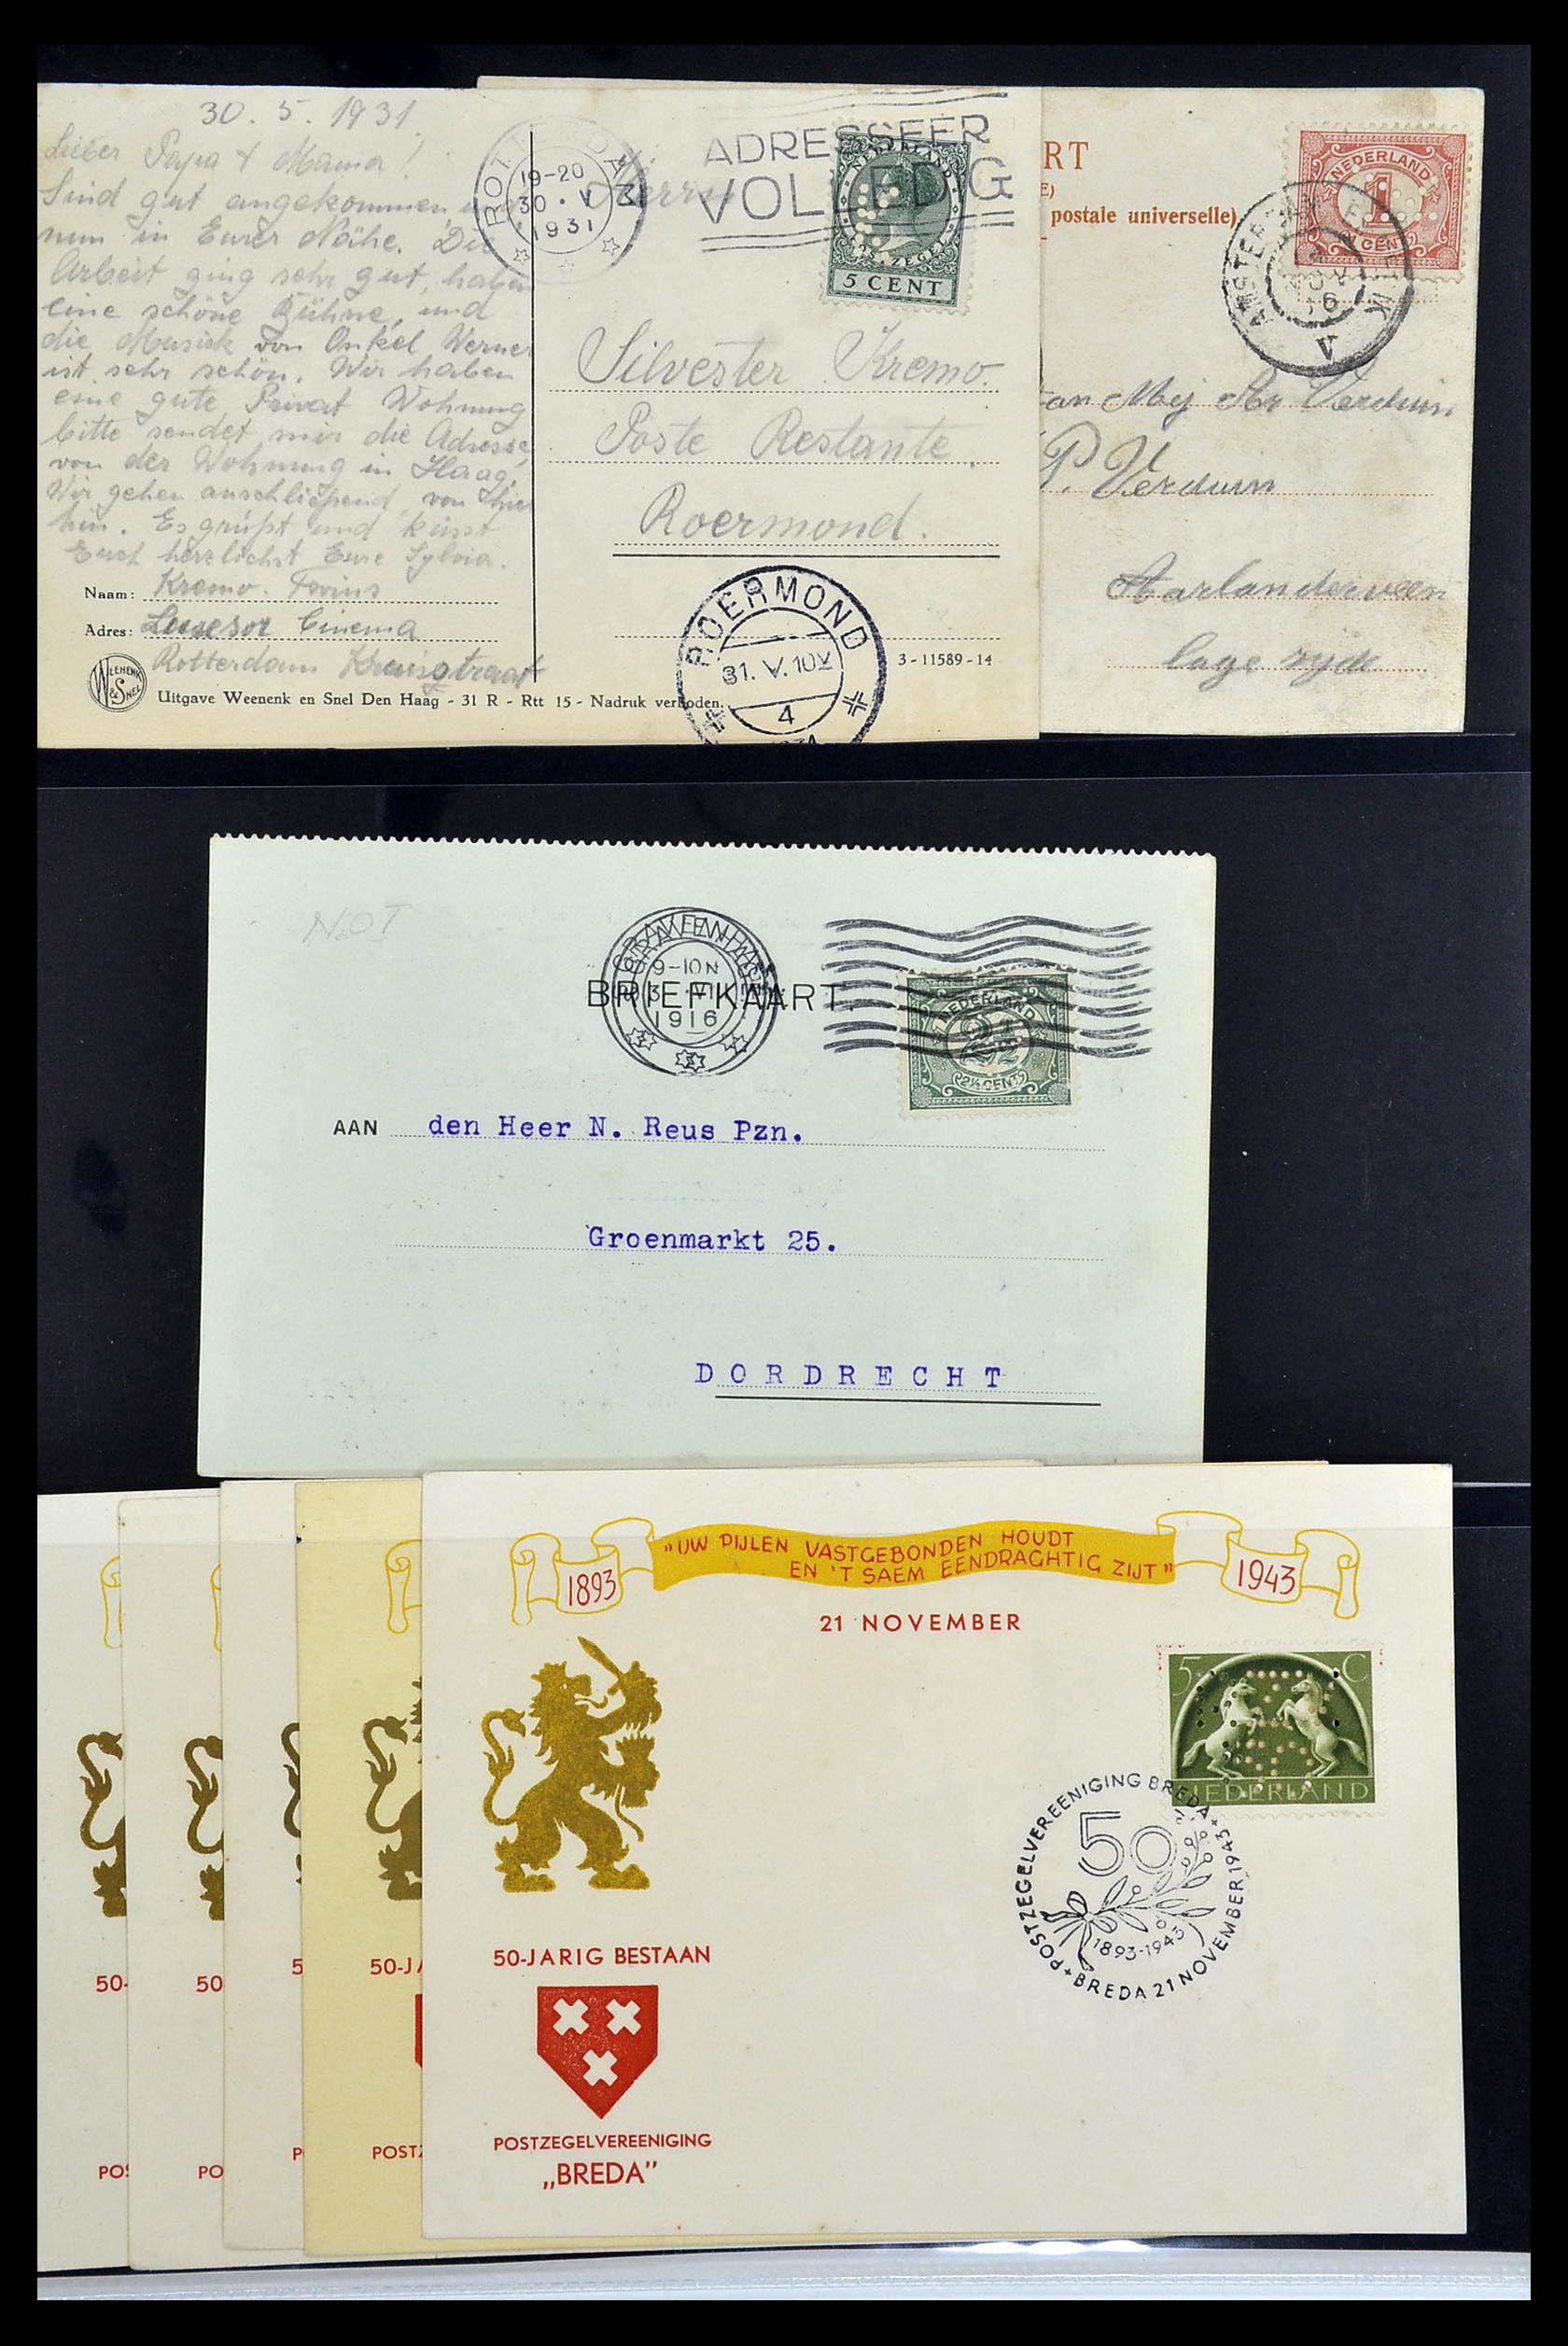 30. 5. 1931.
Lieber Papa + Mama!
Sind gut angekommen, und
nun in Eurer Nähe. Die
Arbeit ging sehr gut, haben
eine schöne Bühne, und
die Musik von Onkel Werner
ist sehr schön. Wir haben
eine gute Privat Wohnung
bitte sendet mir die Adresse,
von der Wohnung in Haag.
Wir gehen anschließend von hier
hin. Es grüßt und küsst
Euch herzlichst Eure Sylvia.
Naam: Kremo.
Adres: Luxor Cinema
Rotterdam Kruisstraat
WEENENK & SNEL
Uitgave Weenenk en Snel Den Haag - 31 R - Rtt 15 - Nadruk verboden.
19-20
30 . V
1931
ADRESSEER
VOLLEDIG
NEDERLAND
5 CENT
Herrn
Silvester Kremo.
Poste Restante.
Roermond.
ROERMOND
31. V. 10V
4
3-11589-14
RT
E)
postale universelle)
NEDERLAND
1
CENT
AMSTERDAM
NOV
16
V
Verduin
P. Verduin
Aarlanderveen
lage zyde
No I
9-10N
1916
BRIEFKAART.
NEDERLAND
2½
2½ CENT
AAN den Heer N. Reus Pzn.
Groenmarkt 25.
DORDRECHT
1893
„UW PIJLEN VASTGEBONDEN HOUDT
EN 'T SAEM EENDRACHTIG ZIJT”
1943
21 NOVEMBER
5 C
NEDERLAND
POSTZEGELVEREENIGING BREDA
50
1893-1943
BREDA 21 NOVEMBER 1943
50-JARIG BESTAAN
POSTZEGELVEREENIGING
„BREDA”
50-
50
5
50-J
POS
PO
P
POSTZ